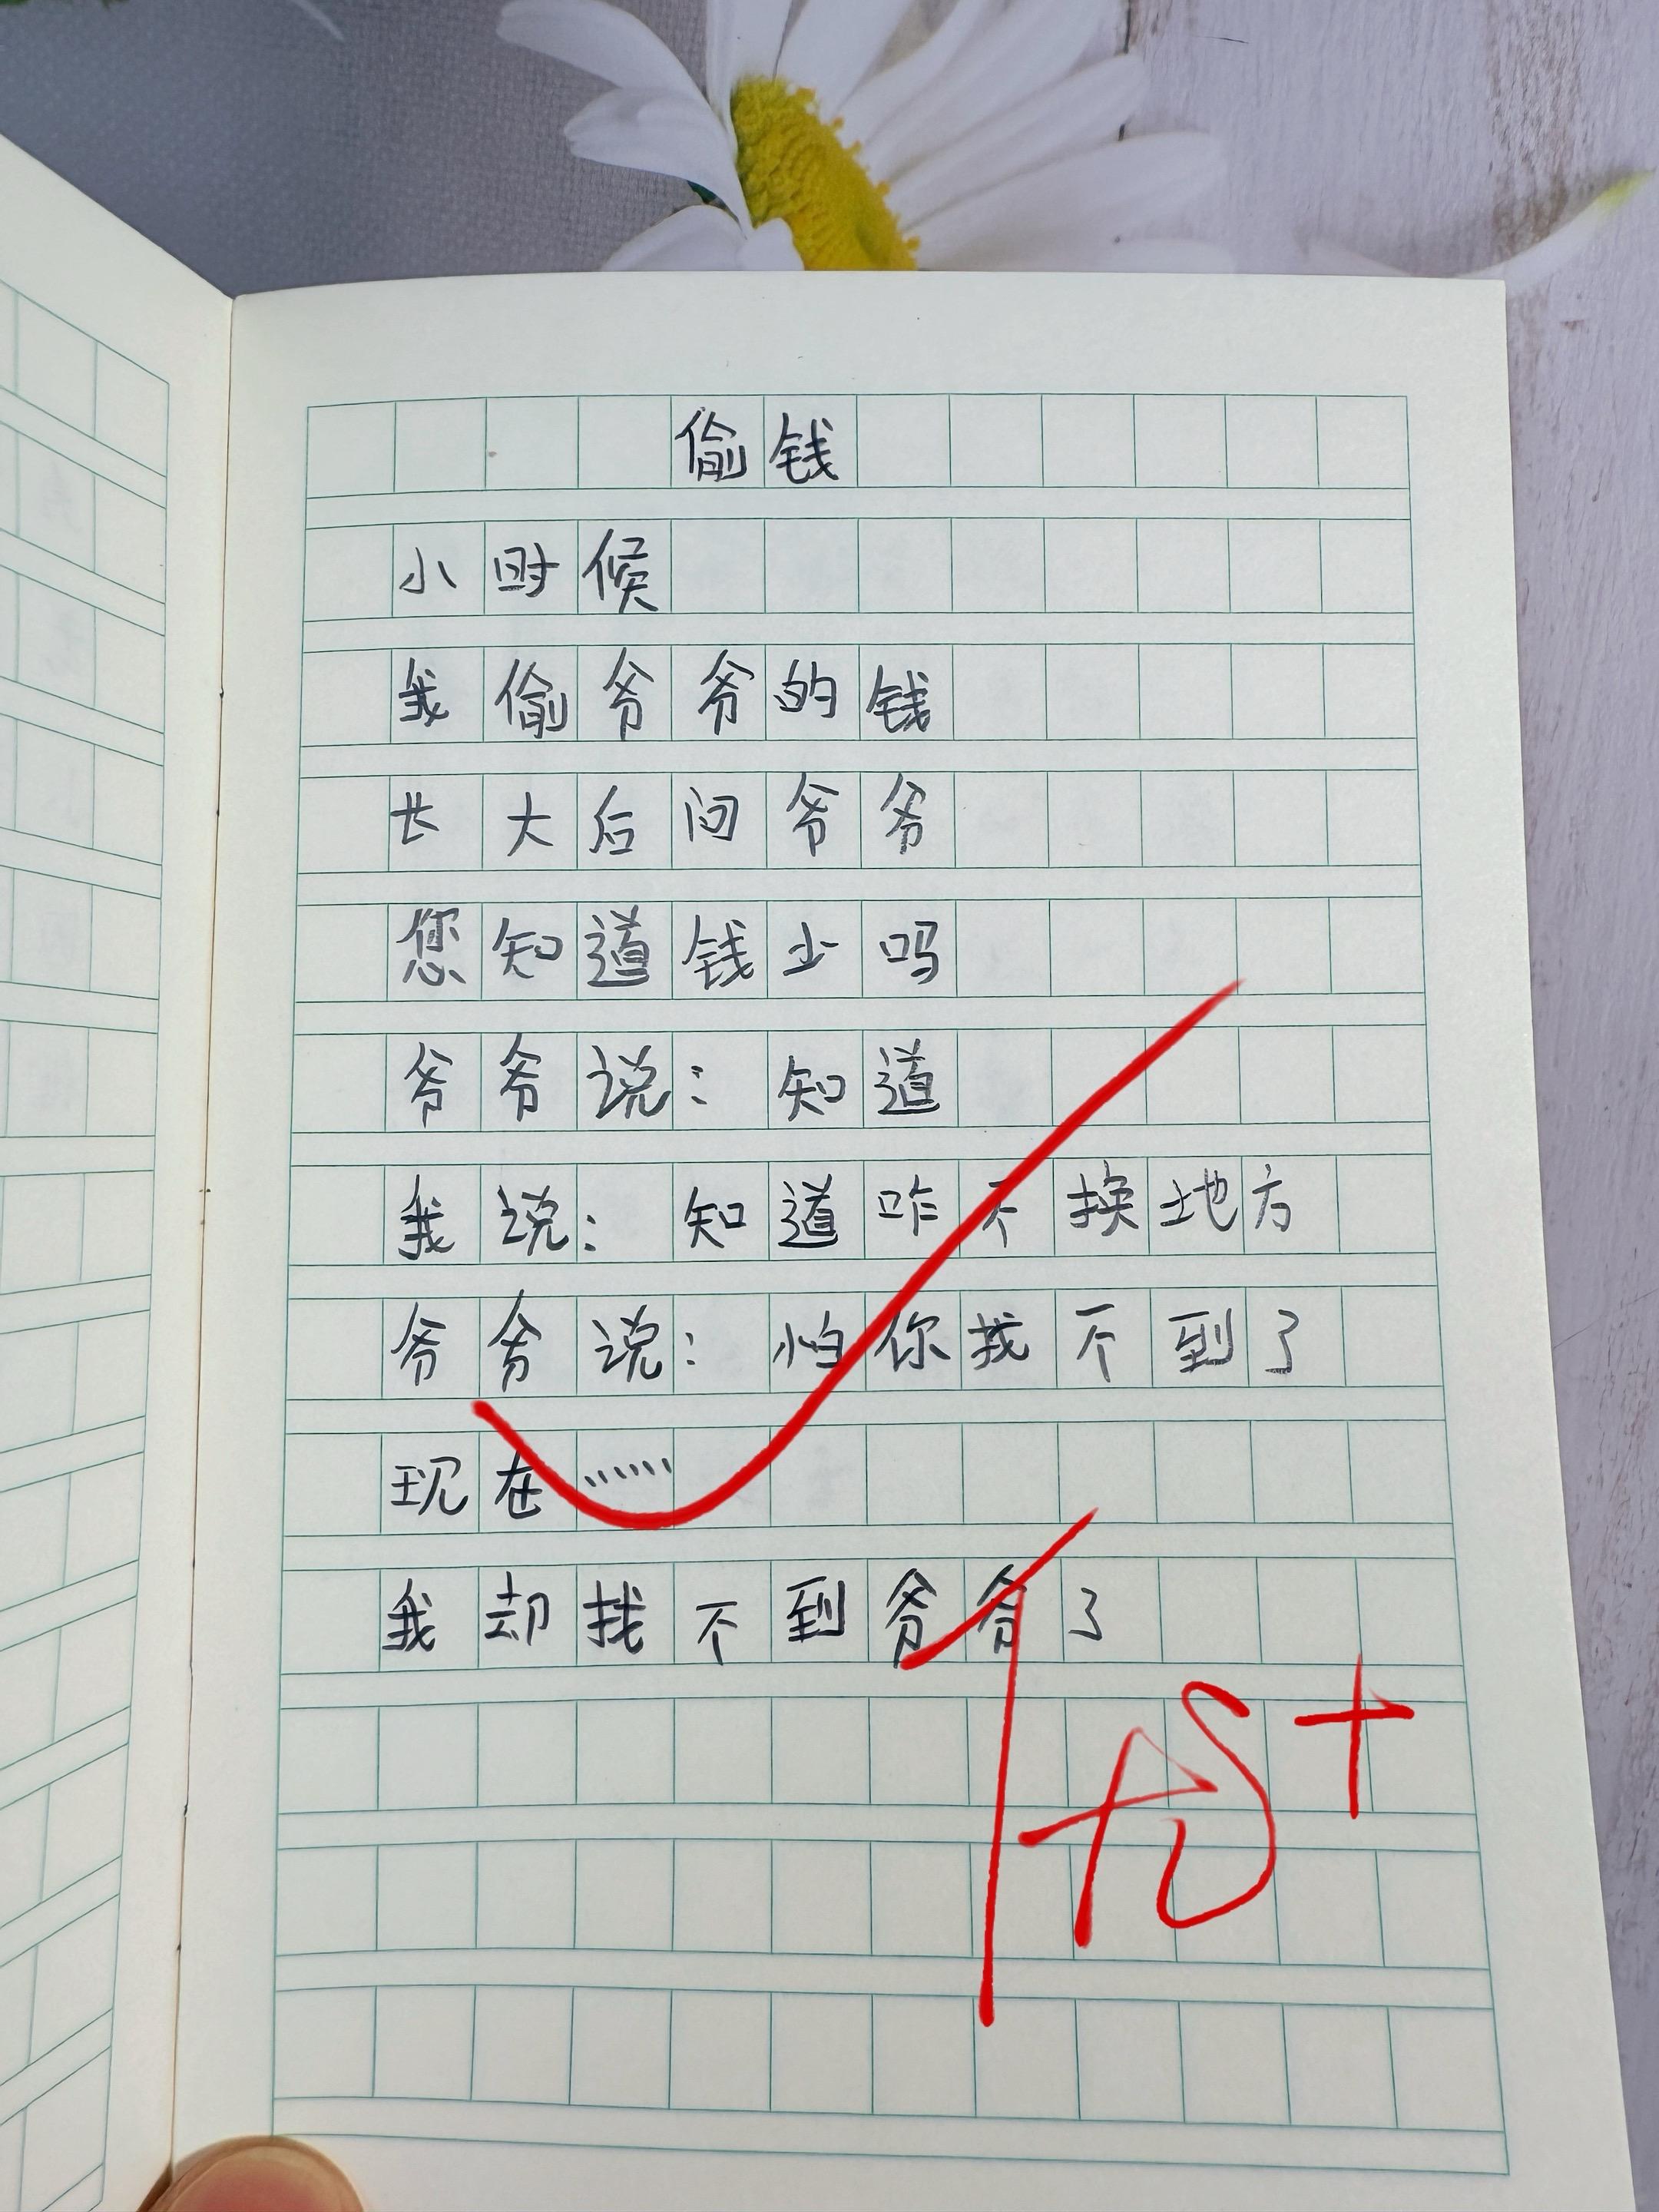 偷钱
小时候
我偷爷爷的钱
长大后问爷爷
您知道钱少吗
爷爷说：知道
我说：知道咋不换地方
爷爷说：怕你找不到了
现在……
我却找不到爷爷了